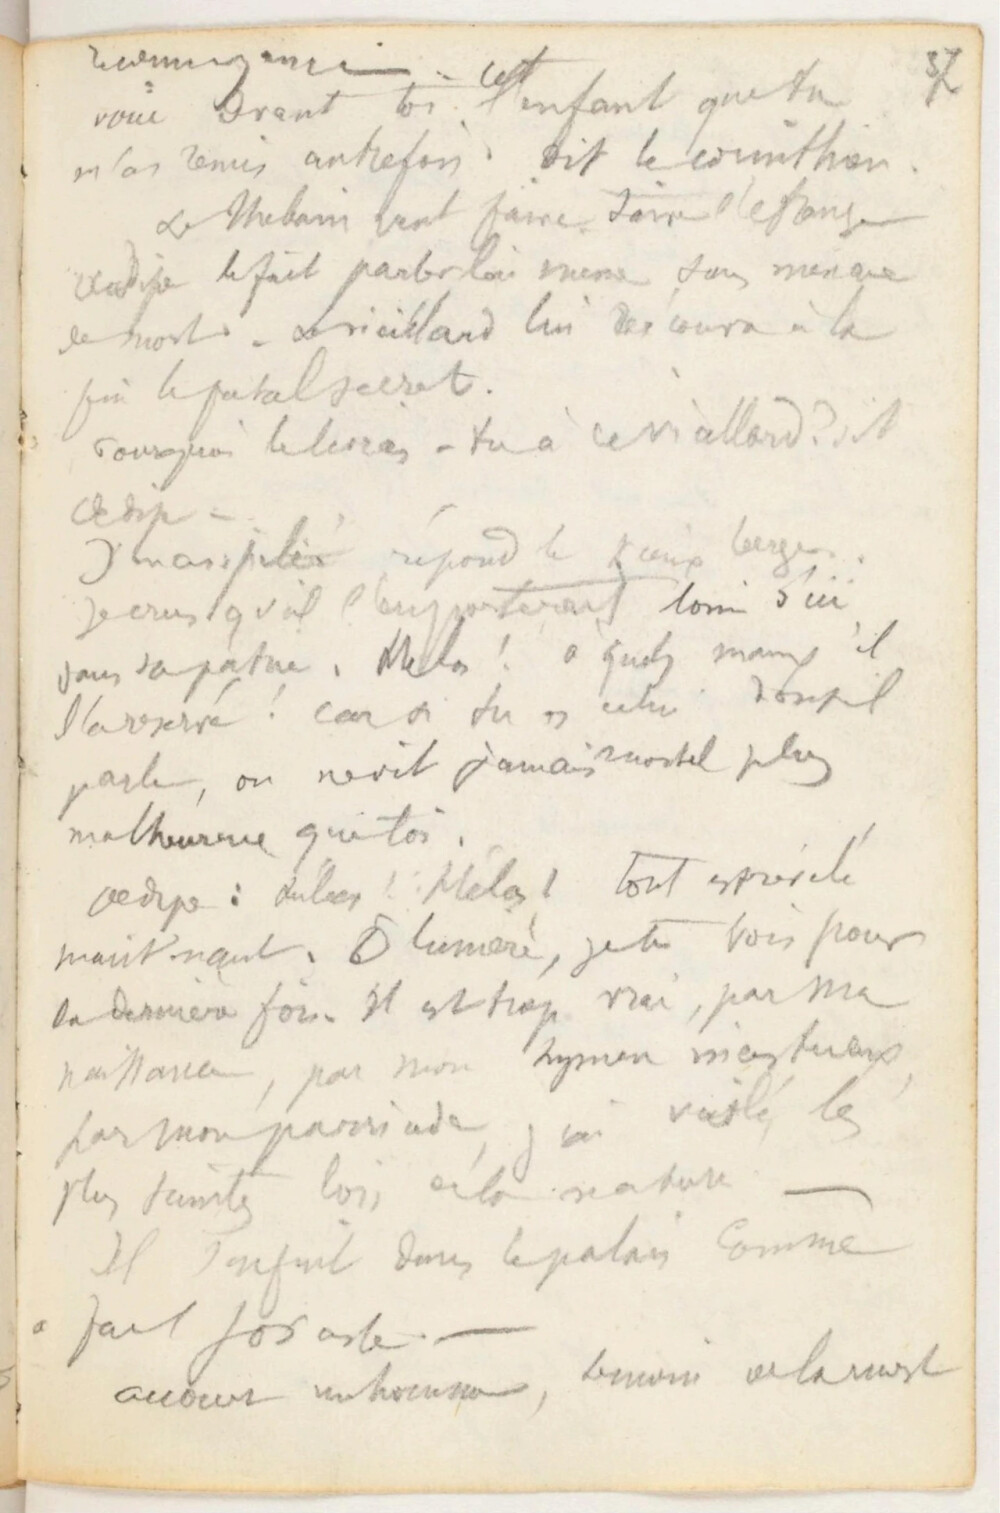 37
voici devant toi cet enfant que tu
m'as remis autrefois. dit le corinthien.
Le Thebain veut faire taire l'étranger
oedipe le fait parler lui meme sous menace
de mort. - Le vieillard lui découvre à la
fin le fatal secret.
Pourquoi le livrais-tu à ce vieillard? dit
Oedipe -
J'en as pitié répond le vieux berger.
je crus qu'il l'emporterait loin d'ici,
dans sa patrie. Helas! à quels maux il
l'a reservé! car si tu es celui dont il
parle, on ne vit jamais mortel plus
malheureux que toi.
Oedipe: hélas! Hélas! tout est révélé
maint'nant. O lumière, je te vois pour
la dernière fois. Il est trop vrai, par ma
naissance, par mon hymen incestueux,
par mon parricide, j'ai violé, les
plus saintes lois de la nature —
Il s'enfuit dans le palais comme
fait Jocaste. —
accourt un homme, temoin de la mort